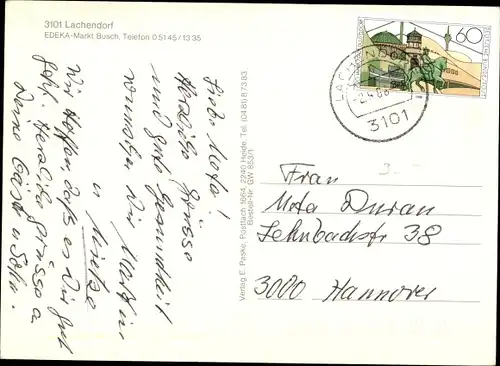 3101 Lachendorf
EDEKA-Markt Busch, Telefon 0 51 45 / 13 35
Liebe Meta!
Herzliche Grüsse
und gute Gesundheit
wünschen Dir Martin
u Mietze
Wir hoffen, dass es Dir gut
geht. Herzliche Grüsse a
Deine Gäste u
Verlag E. Paske, Postfach 1664, 2240 Heide, Tel. (04 81) 8 73 83
Bestell-Nr. GW 853/1
60
LACHENDORF
3101
Frau
Meta Duran
Lehnbachstr 38
3000 Hannover